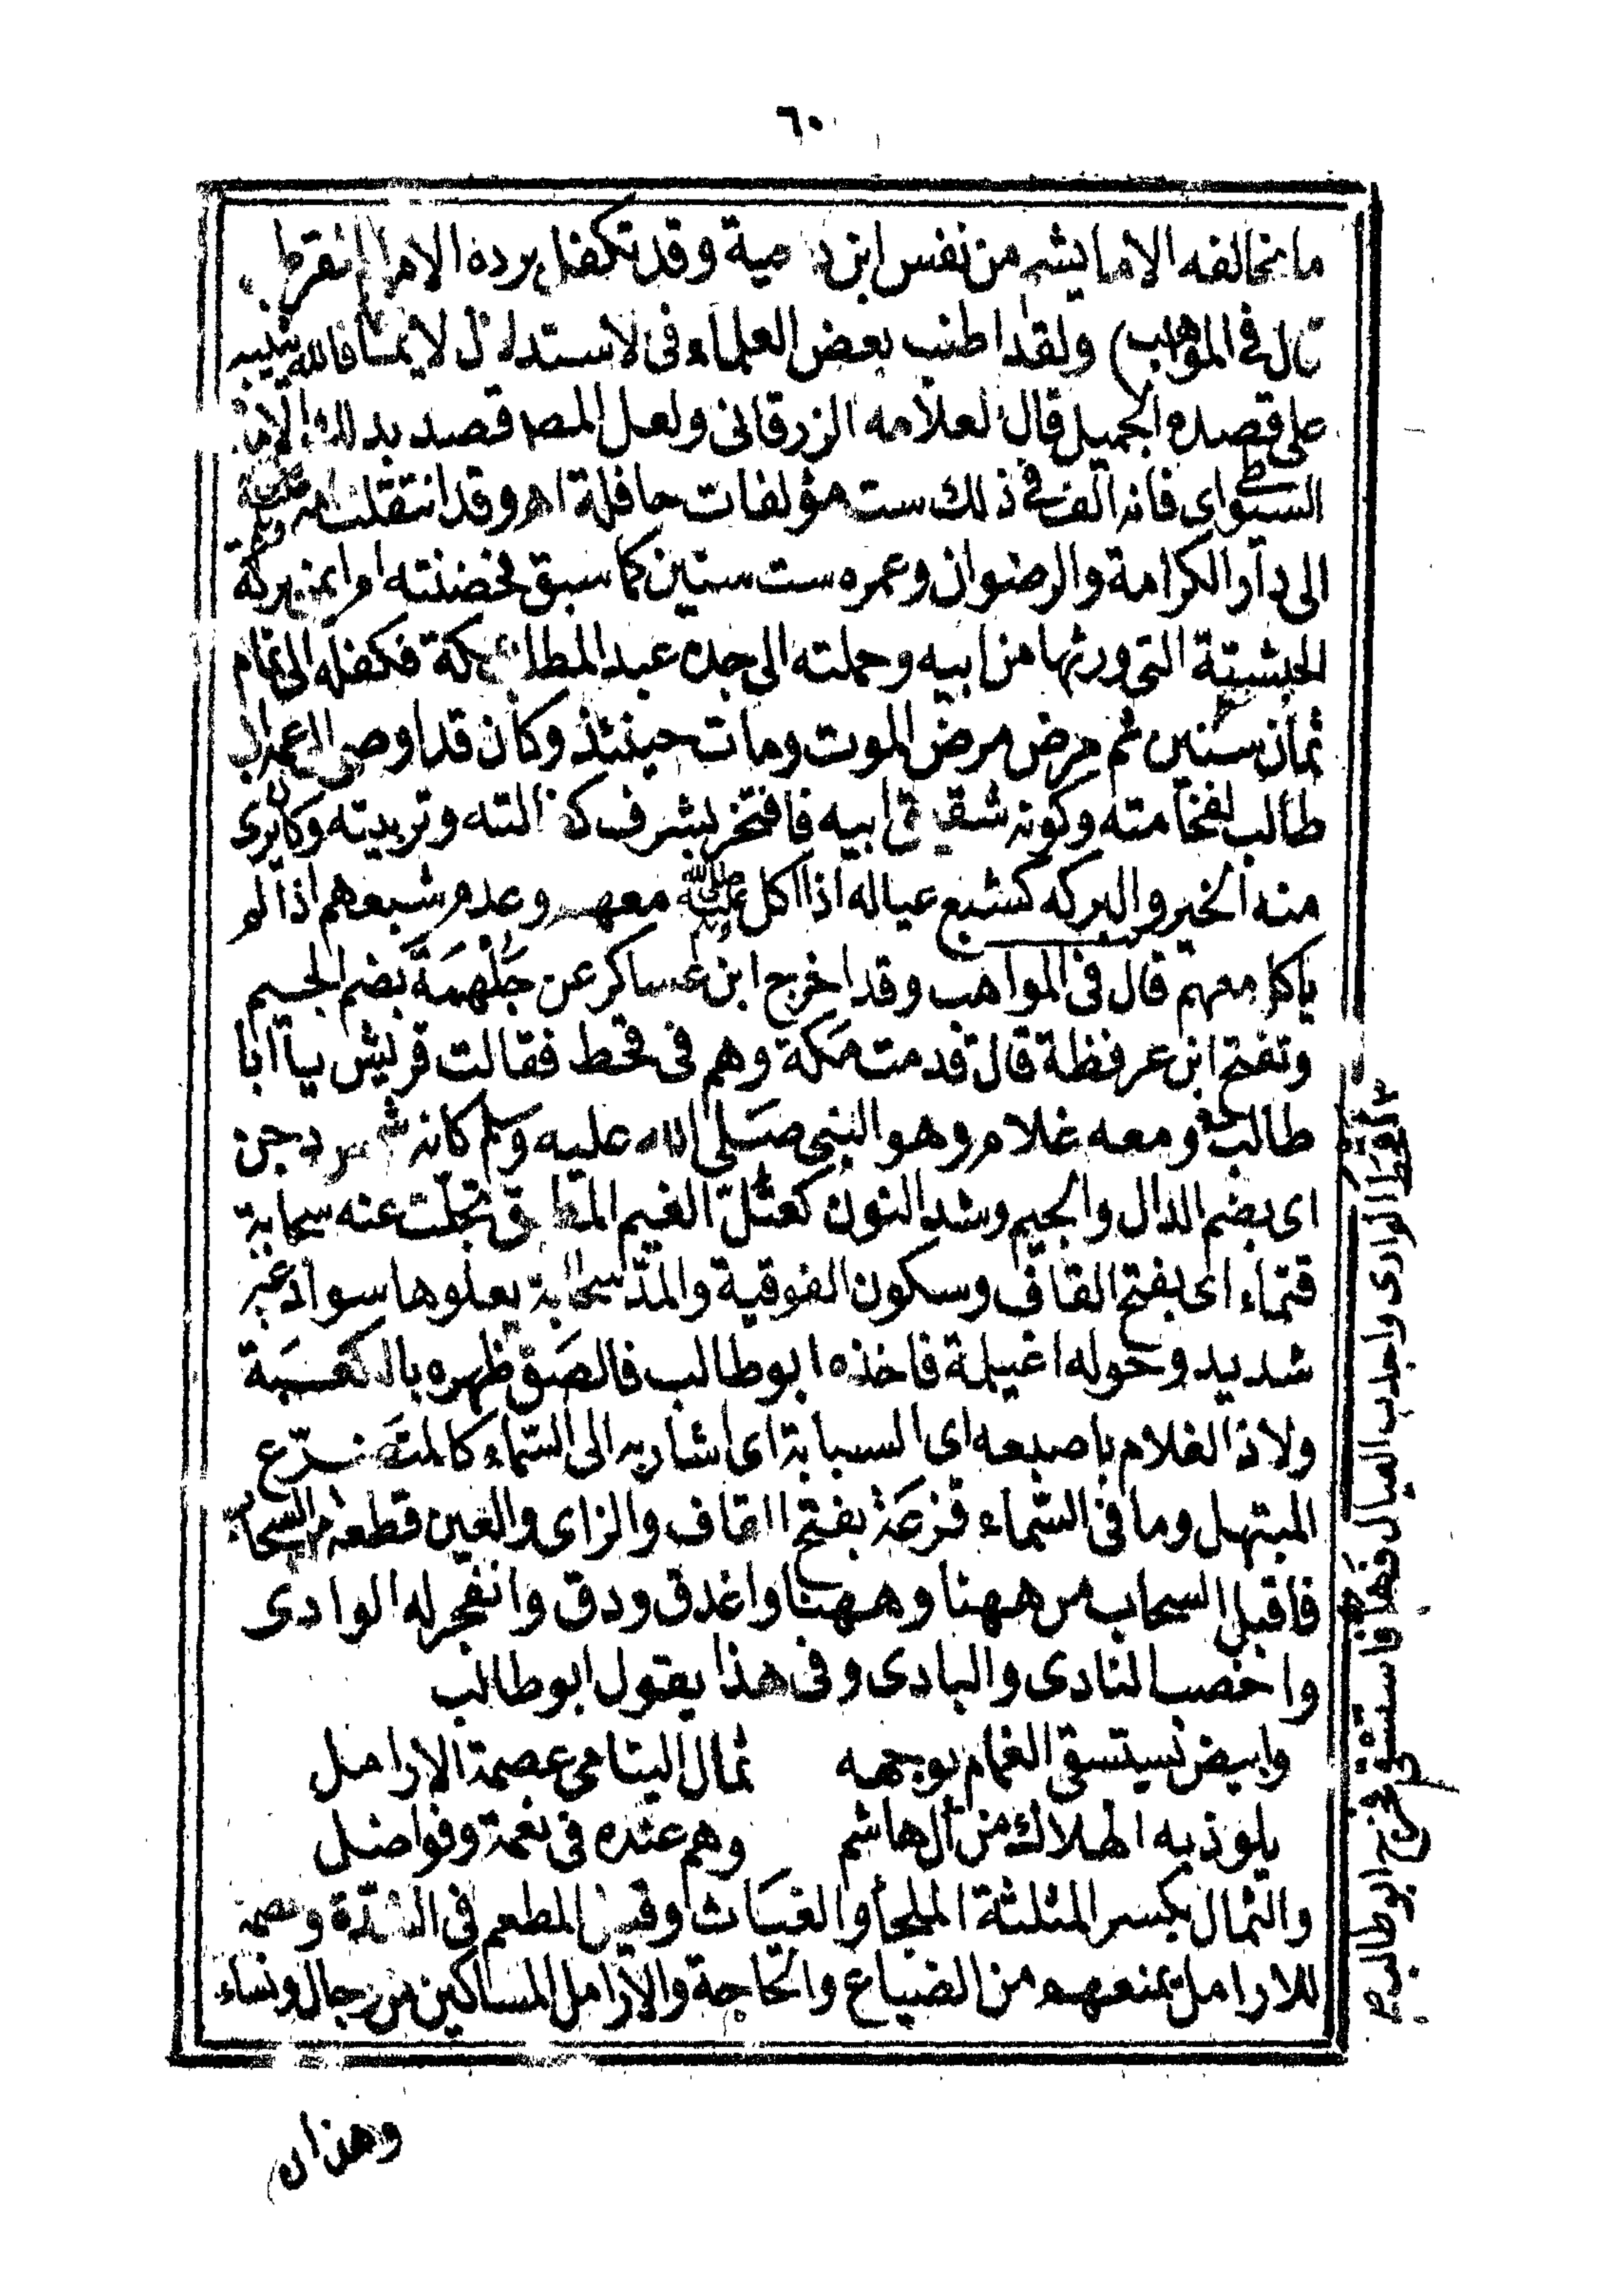 ٦٠
ما يخالفه الا ما يشم من نفس ابن دحية وقد تكفل برده الامام القرطبى
قال فى المواهب) ولقد اطنب بعض العلماء فى الاستدلال لايمانهما فالله يثيبه
على قصده الجميل قال العلامه الزرقانى ولعل المص قصد بذلك الامام
السيوطى اى فانه الف فى ذلك ست مؤلفات حافلة اهـ وقد انتقلت امه
الى دار الكرامة والرضوان وعمره ست سنين كما سبق فحضنته ام ايمن بركة
الحبشية التى ورثها من ابيه وحملته الى جده عبد المطلب بمكة فكفله الى تمام
ثمان سنين ثم مرض مرض الموت ومات حينئذ وكان قد اوصى الى عمه ابى
طالب لفخامته وكونه شقيق ابيه فافتخر بشرف كفالته وتربيته وكان يرى
منه الخير والبركه كشبع عياله اذا اكل صلى الله عليه وسلم معهم وعدم شبعهم اذا لم
ياكل معهم قال فى المواهب وقد اخرج ابن عساكر عن جُلْهُمَةَ بضم الجيم
وتفتح ابن عرفطة قال قدمت مكة وهم فى قحط فقالت قريش يا ابا
طالب ومعه غلام وهو النبى صلى الله عليه وسلم كانه شمس دجن
اى بضم الدال والجيم وشد النون كعتل الغيم المطبق تجلت عنه سحابة
قتماء اى بفتح القاف وسكون الفوقية والمد سحابة يعلوها سواد غير
شديد وحوله اغيلمة فاخذه ابو طالب فالصق ظهره بالكعبة
ولاذ الغلام باصبعه اى السبابة اى اشار به الى السماء كالمتضرع
المبتهل وما فى السماء قزعة بفتح القاف والزاى والعين قطعة من السحاب
فاقبل السحاب من ههنا وههنا واغدق ودق وانفجر له الوادى
واخصب النادى والبادى وفى هذا يقول ابو طالب
وابيض يستسقى الغمام بوجهه ثمال اليتامى عصمة الارامل
يلوذ به الهلاك من آل هاشم وهم عنده فى نعمة وفواضل
والثمال بكسر المثلثة الملجأ والغياث وقيل المطعم فى الشدّة وعصمة
للارامل يمنعهم من الضياع والحاجة والارامل المساكين من رجال ونساء
وهذان
اقحط الوادى واجدب العيال فهلم فاستسق فخرج ابو طالب م